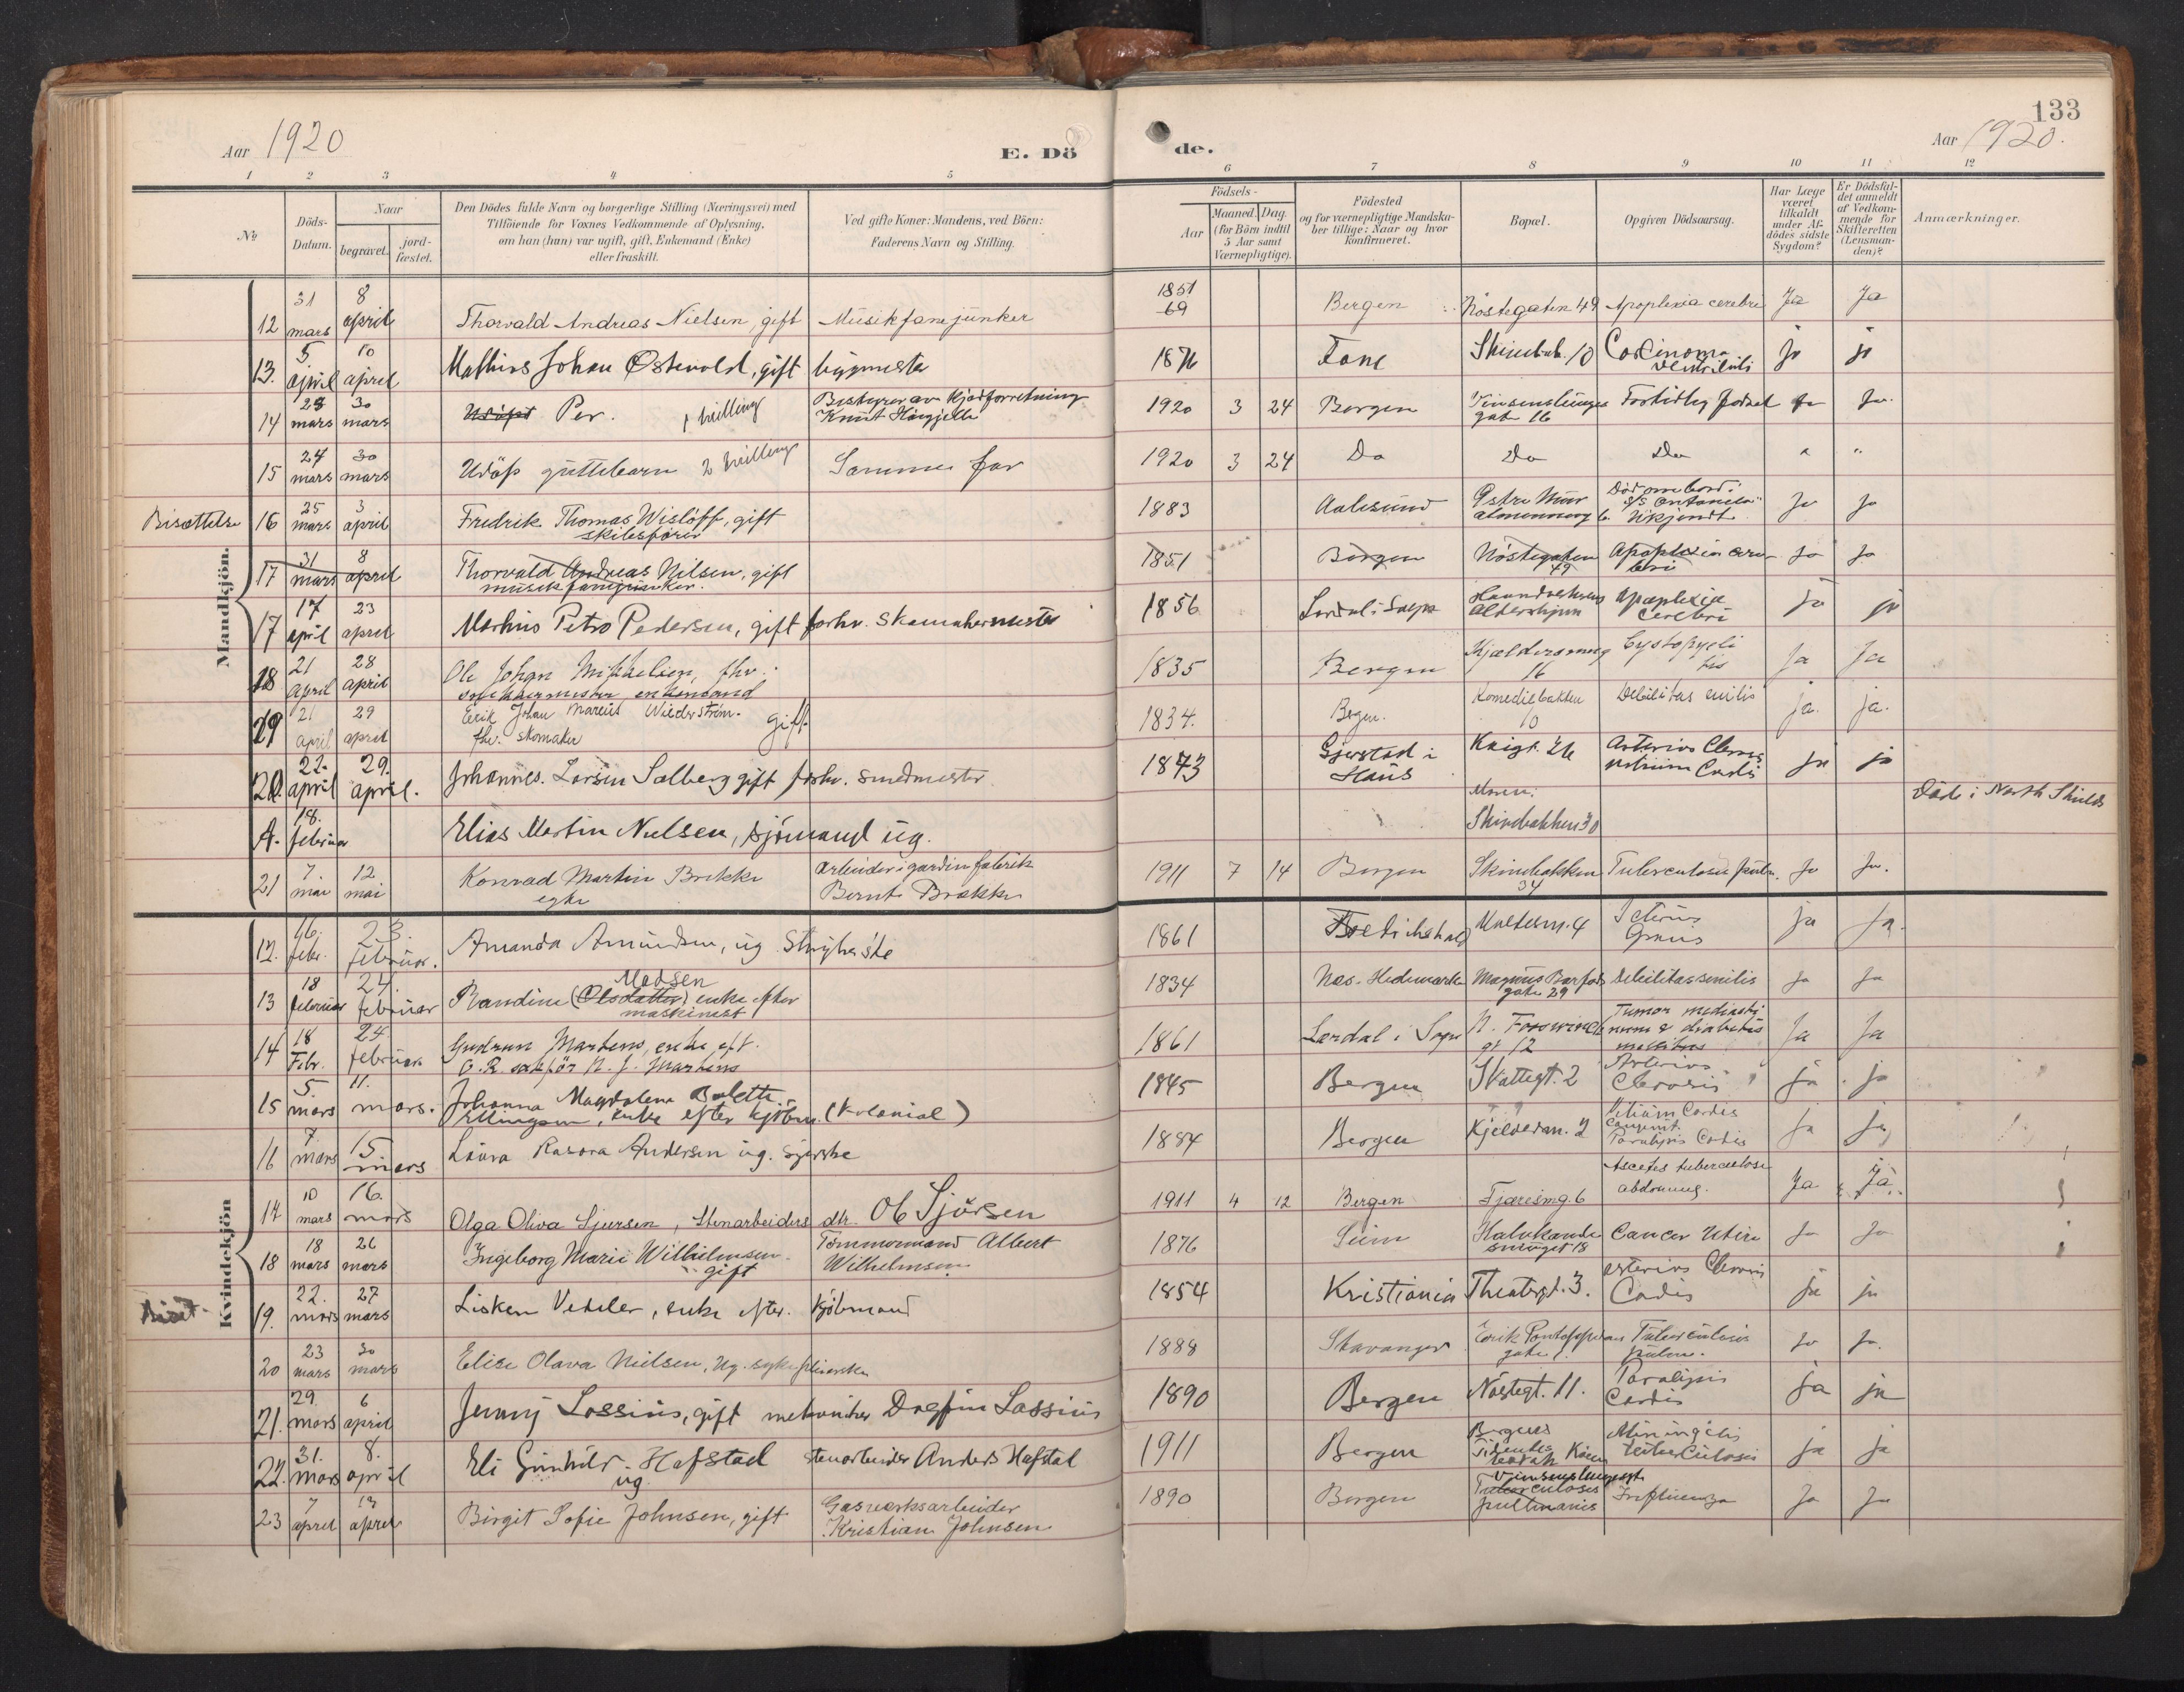 133
Aar 1920
E. Döde.
Aar 1920.
1 2 3 4 5 6 7 8 9 10 11 12
No
Döds-Datum.
Naar
begravet.
jord-fæstet.
Den Dödes fulde Navn og borgerlige Stilling (Næringsvei) med
Tilföiende for Voxnes Vedkommende af Oplysning,
om han (hun) var ugift, gift, Enkemand (Enke)
eller fraskilt.
Ved gifte Koner: Mandens, ved Börn:
Faderens Navn og Stilling.
Födsels-
Aar
Maaned. Dag.
(for Börn indtil
5 Aar samt
Værnepligtige).
Födested
og for værnepligtige Mandska-
ber tillige: Naar og hvor
konfirmeret.
Bopæl.
Opgiven Dödsaarsag.
Har Læge
været
tilkaldt
under Af-
dödes sidste
Sygdom?
Er Dödsfal-
det anmeldt
af Vedkom-
mende for
Skifteretten
(Lensman-
den)?
Anmærkninger.
Mandkjön.
12 31 mars 8 april Thorvald Andreas Nielsen, gift Musikfanejunker 1851 69 Bergen Nöstegaten 49 Apoplexia cerebri Ja Ja
13. 5 april 10 april Mathias Johan Östevold, gift bygmester 1876 Fane Skivebak. 10 Carcinoma ventriculi ja ja
14 mars 30 mars Udöpt Per. 1 tvilling Bestyrer av Kjødforretning Knut 1920 3 24 Bergen gate 16 Fortidlig födsel ja ja.
15 24 mars 30 mars Udöpt guttebarn 2 tvilling Samme far 1920 3 24 Do Do Do " "
Bisættelse 16 25 mars 3 april Fredrik Thomas Wislöff, gift skibsförer 1883 Aalesund Östre Muur almenning 6. Död ombord i s/s Ukjendt ja ja
17 31 mars 8 april Thorvald Andreas Nilsen, gift musikfanejunker. 1851 Bergen Nöstegaten 49 Apoplexia cerebri ja ja
17 17 april 23 april Markus Petro Pedersen, gift forhv. Skomakermester 1856 Lærdal i Sogn Haandverkernes Aldershjem Apoplexia Cerebri ja ja
18 21 april 28 april Ole Johan Mikkelsen, fhv. snekkermester enkemand 1835 Bergen 16 Cystopyelitis Ja Ja
19 21 april 29 april Erik Johan Marcus Wiederström. fhv. skomaker gift. 1834. Bergen. Komediebakken 10 Debilitas senilis ja. ja.
20. 22. april 29. april. Johannes Larsen Solberg gift forhv. smedmester 1873 Gjerstad i Haus Knigt. 26 Arterio Clerosis vitium Cordis ja ja
A. 18. februar Elias Martin Nielsen, sjömand ug. Skivebakken 30 Döde i North Shields
21 7 mai 12 mai Konrad Martin Brekke egte arbeider i gardinfabrik Bernt Brekke 1911 7 14 Bergen Skivebakken 34 Tuberculosis pulm. Ja Ja.
Kvindekjön
12. 16. febr. 23. februar. Amanda Amundsen, ug. Strykerske 1861 Fredrikshald Muldersm. 4 Icterus Gravis ja ja.
13 18 februar 24 februar Randine (Olsdatter) Madsen enke efter maskinist 1834 Nes. Hedemarken Magnus Barfots gate 29 Debilitas senilis ja ja
14 18 Febr. 24 februar Gudrun Martens, enke eft. O.R. sakför N. J. Martens 1861 Lærdal i Sogn gt 12 Tumor mediastinum & diabetes mellitus Ja Ja
15 5. mars 11. mars. Johanna Magdalena Bolette Ellingsen, enke efter kjöbm. (Kolonial) 1845 Bergen Skattegt. 2 Arterio Clerosis ja ja
16 7 mars 15 mars Laura Rasora Andersen ug. syerske 1884 Bergen Kjelderm. 2 Vitium Cordis Congenit. Paralysis Cordis ja ja
17 10 mars 16. mars Olga Oliva Sjursen, Stenarbeiders dtr. Ol Sjursen 1911 4 12 Bergen Tjæresmg. 6 Ascites tuberculose abdomens. Ja ja
18 18 mars 26 mars Ingeborg Marie Wilhelmsen gift Tömmermand Albert Wilhelmsen 1876 Halvkandesmuget 18 Cancer Uteri ja ja
Biset 19. 22. mars 27 mars Lisken Vedeler, enke efter. Kjöbmand 1854 Kristiania Theatergt. 3. Arterio Clerosis Cordis ja ja
20 23 mars 30 mars Elise Olava Nielsen, ug. sykepleierske 1888 Stavanger Erik Pontoppidans gate 1. Tuberculosis pulm. ja ja.
21. 29. mars 6 april Jenny Lossius, gift mekaniker Dagfin Lossius 1890 Bergen Nöstegt. 11. Paralysis Cordis ja ja
22. 31. mars 8. april Eli Gunhild Hafstad ug. stenarbeider Anders Hafstad 1911 Bergen Meningitis tuberculosis ja ja
23 7 april 13 april Birgit Sofie Johnsen, gift Gasverksarbeider Kristian Johnsen 1890 Bergen Tuberculosis pulmonies Influenza Ja Ja